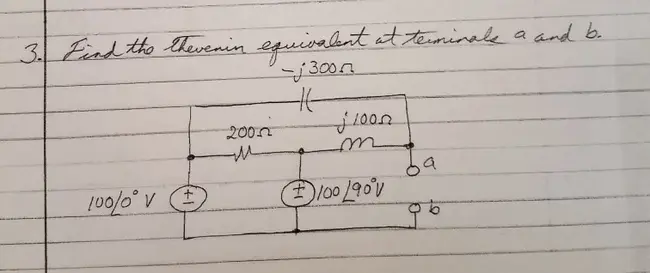 3. Find the Thevenin equivalent at terminals a and b.
-j300Ω
200Ω
j100Ω
a
100∠0° V
±
±
100∠90° V
b